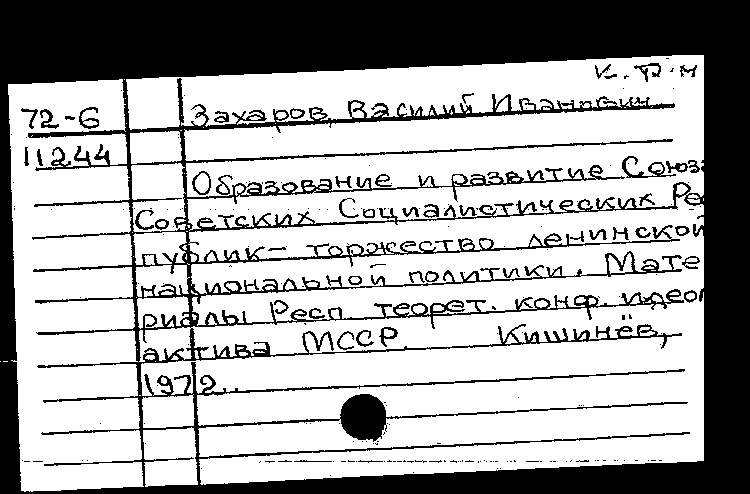 К. Р. М
72-6 Захаров, Василий Иванович
11244
Образование и развитие Союза
Советских Социалистических Рес
публик - торжество ленинской
национальной политики. Мате
риалы Респ. теорет. конф. идеол
актива МССР. Кишинёв,
1972..